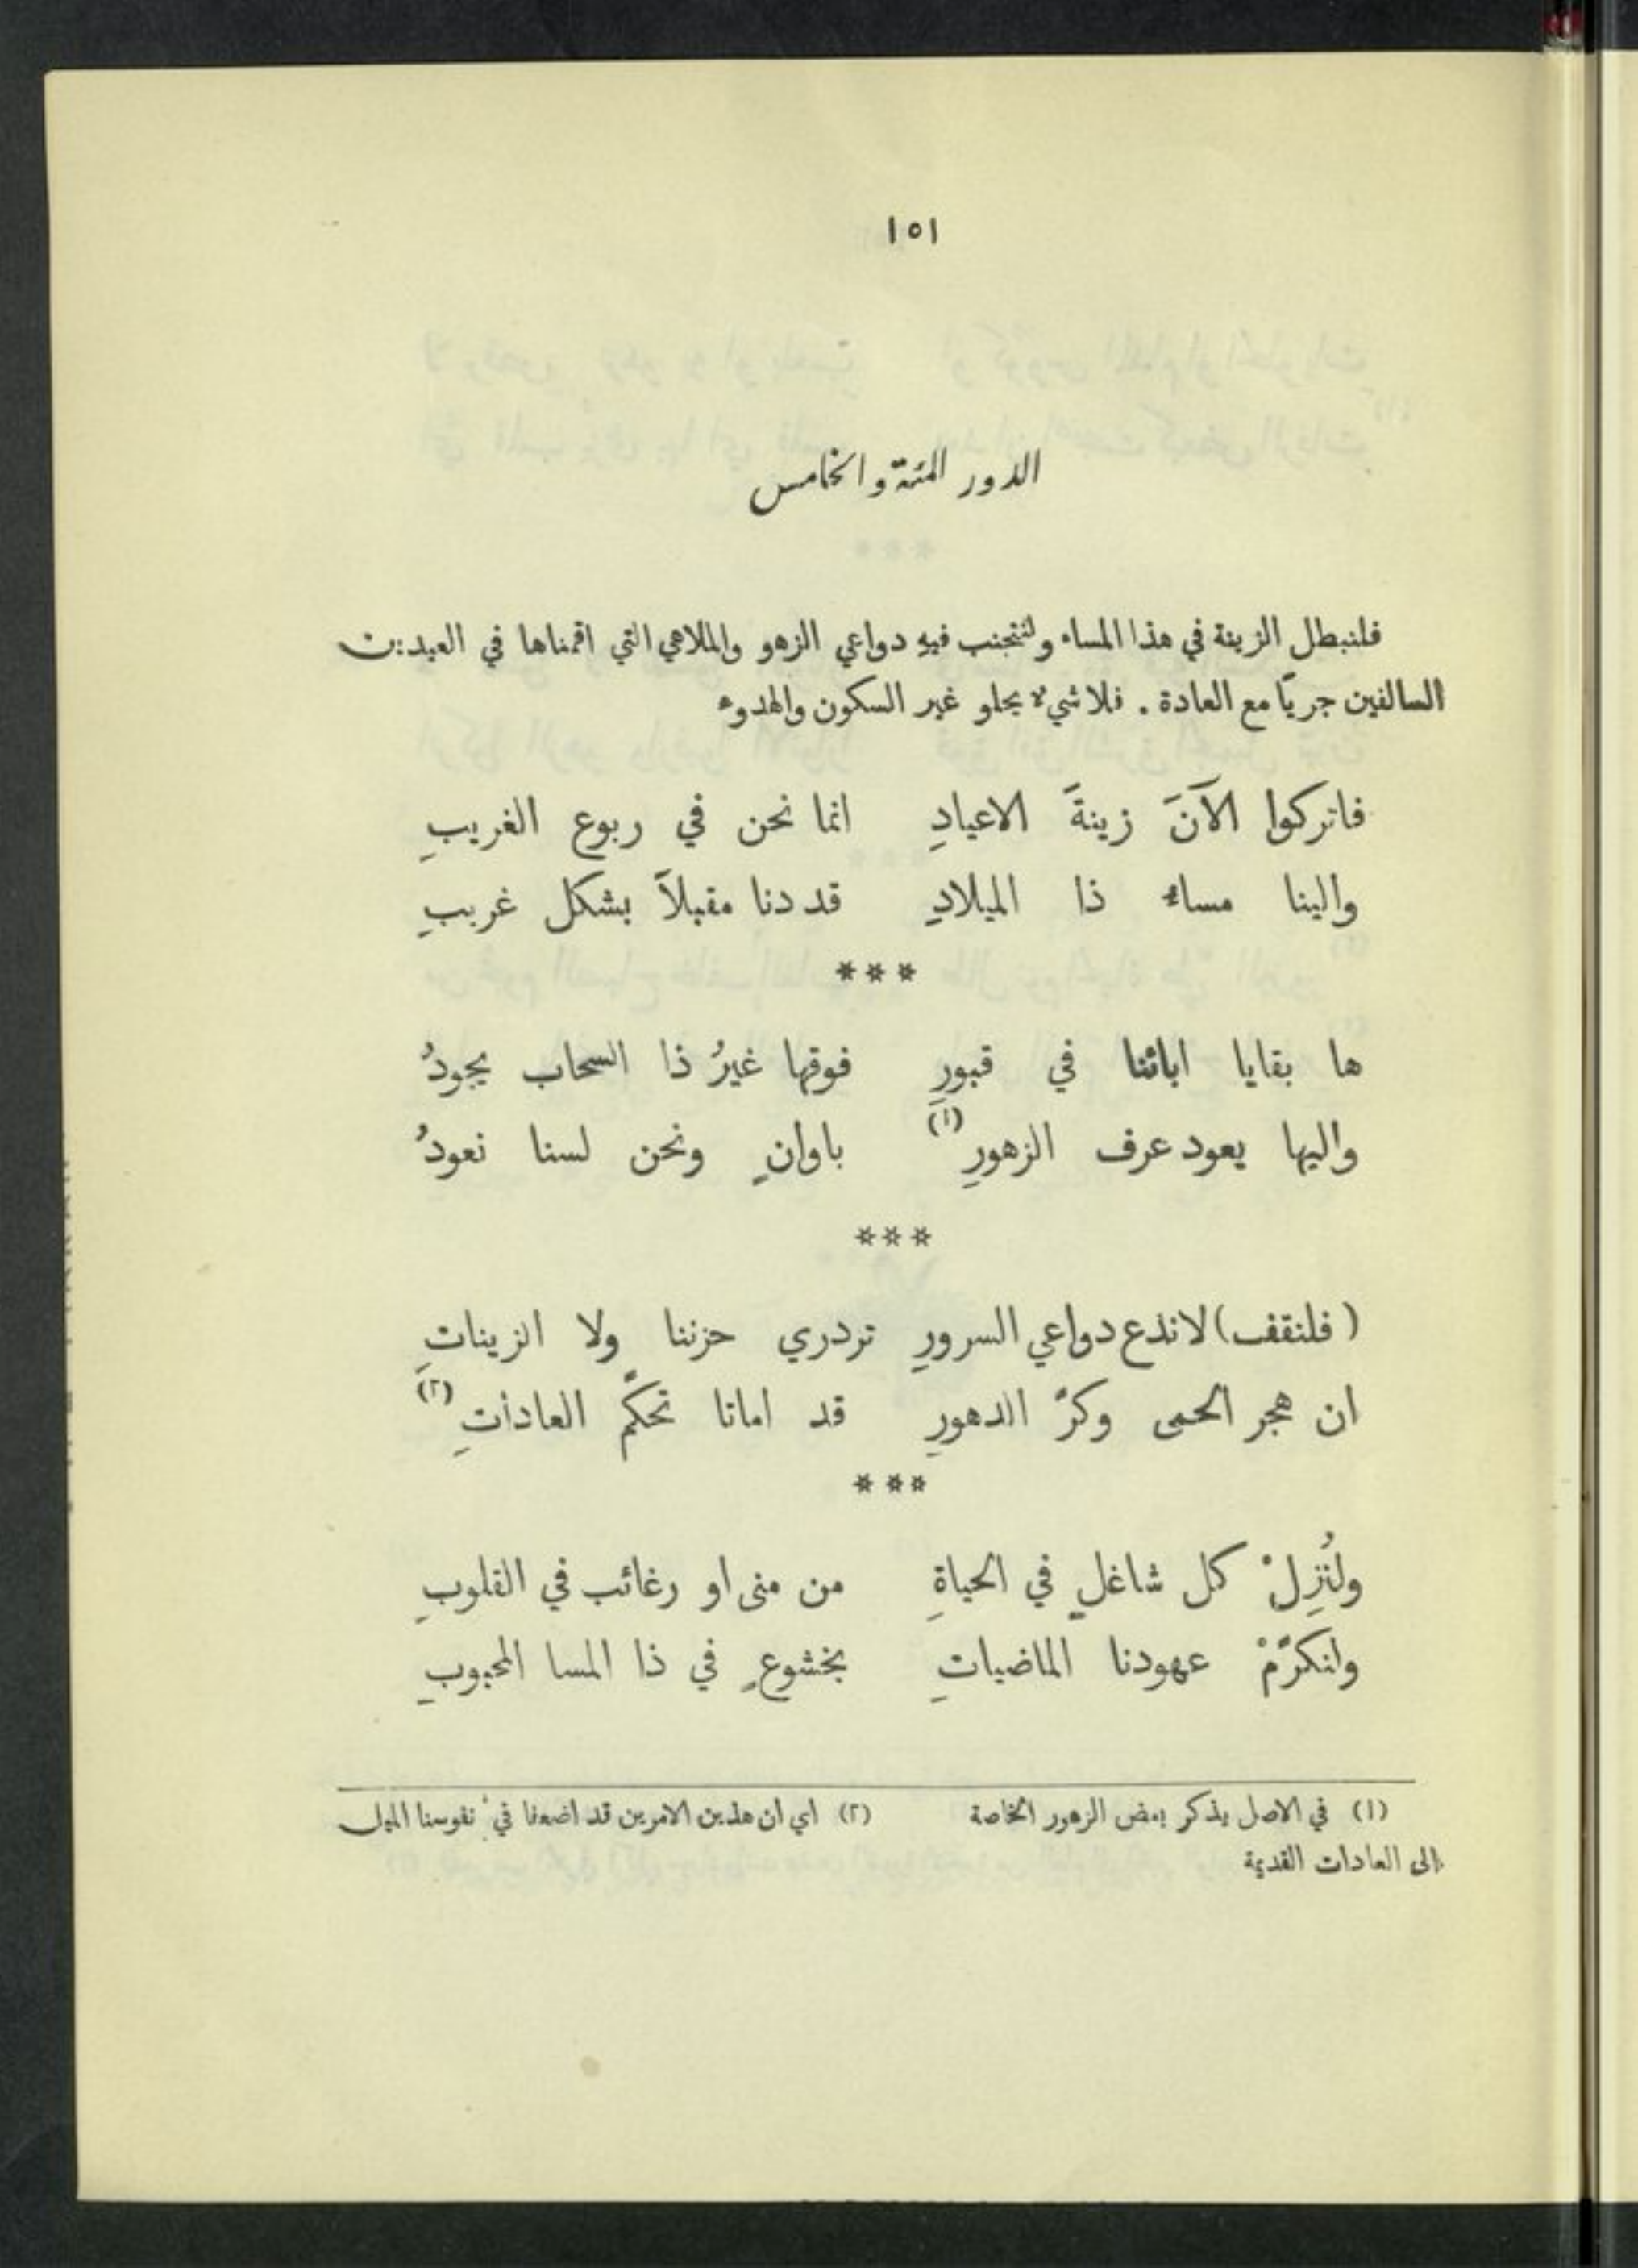 ١٥١
الدور المئة والخامس
فلنبطل الزينة في هذا المساء ولنتجنب فيهِ دواعي الزهو والملاهي التي اقمناها في العيدين
السالفين جريًا مع العادة . فلا شيء يحلو غير السكون والهدوء
فاتركوا الآنَ زينةَ الاعيادِ انما نحن في ربوع الغريبِ
والينا مساء ذا الميلادِ قد دنا مقبلاً بشكل غريبِ
***
ها بقايا ابائنا في قبورِ فوقها غيرُ ذا السحاب يجودُ
واليها يعود عرف الزهورِ (١) باوانٍ ونحن لسنا نعودُ
***
(فلنقف) لا ندع دواعي السرورِ تزدري حزننا ولا الزيناتِ
ان هجر الحمى وكرَّ الدهورِ قد اماتا تحكّم العاداتِ (٢)
***
ولنُزِلْ كل شاغلٍ في الحياةِ من منى او رغائب في القلوبِ
ولنكرّمْ عهودنا الماضياتِ بخشوعٍ في ذا المسا المحبوبِ
(١) في الاصل يذكر بعض الزهور الخاصة (٢) اي ان هذين الامرين قد اضعفا في نفوسنا الميل
الى العادات القديمة